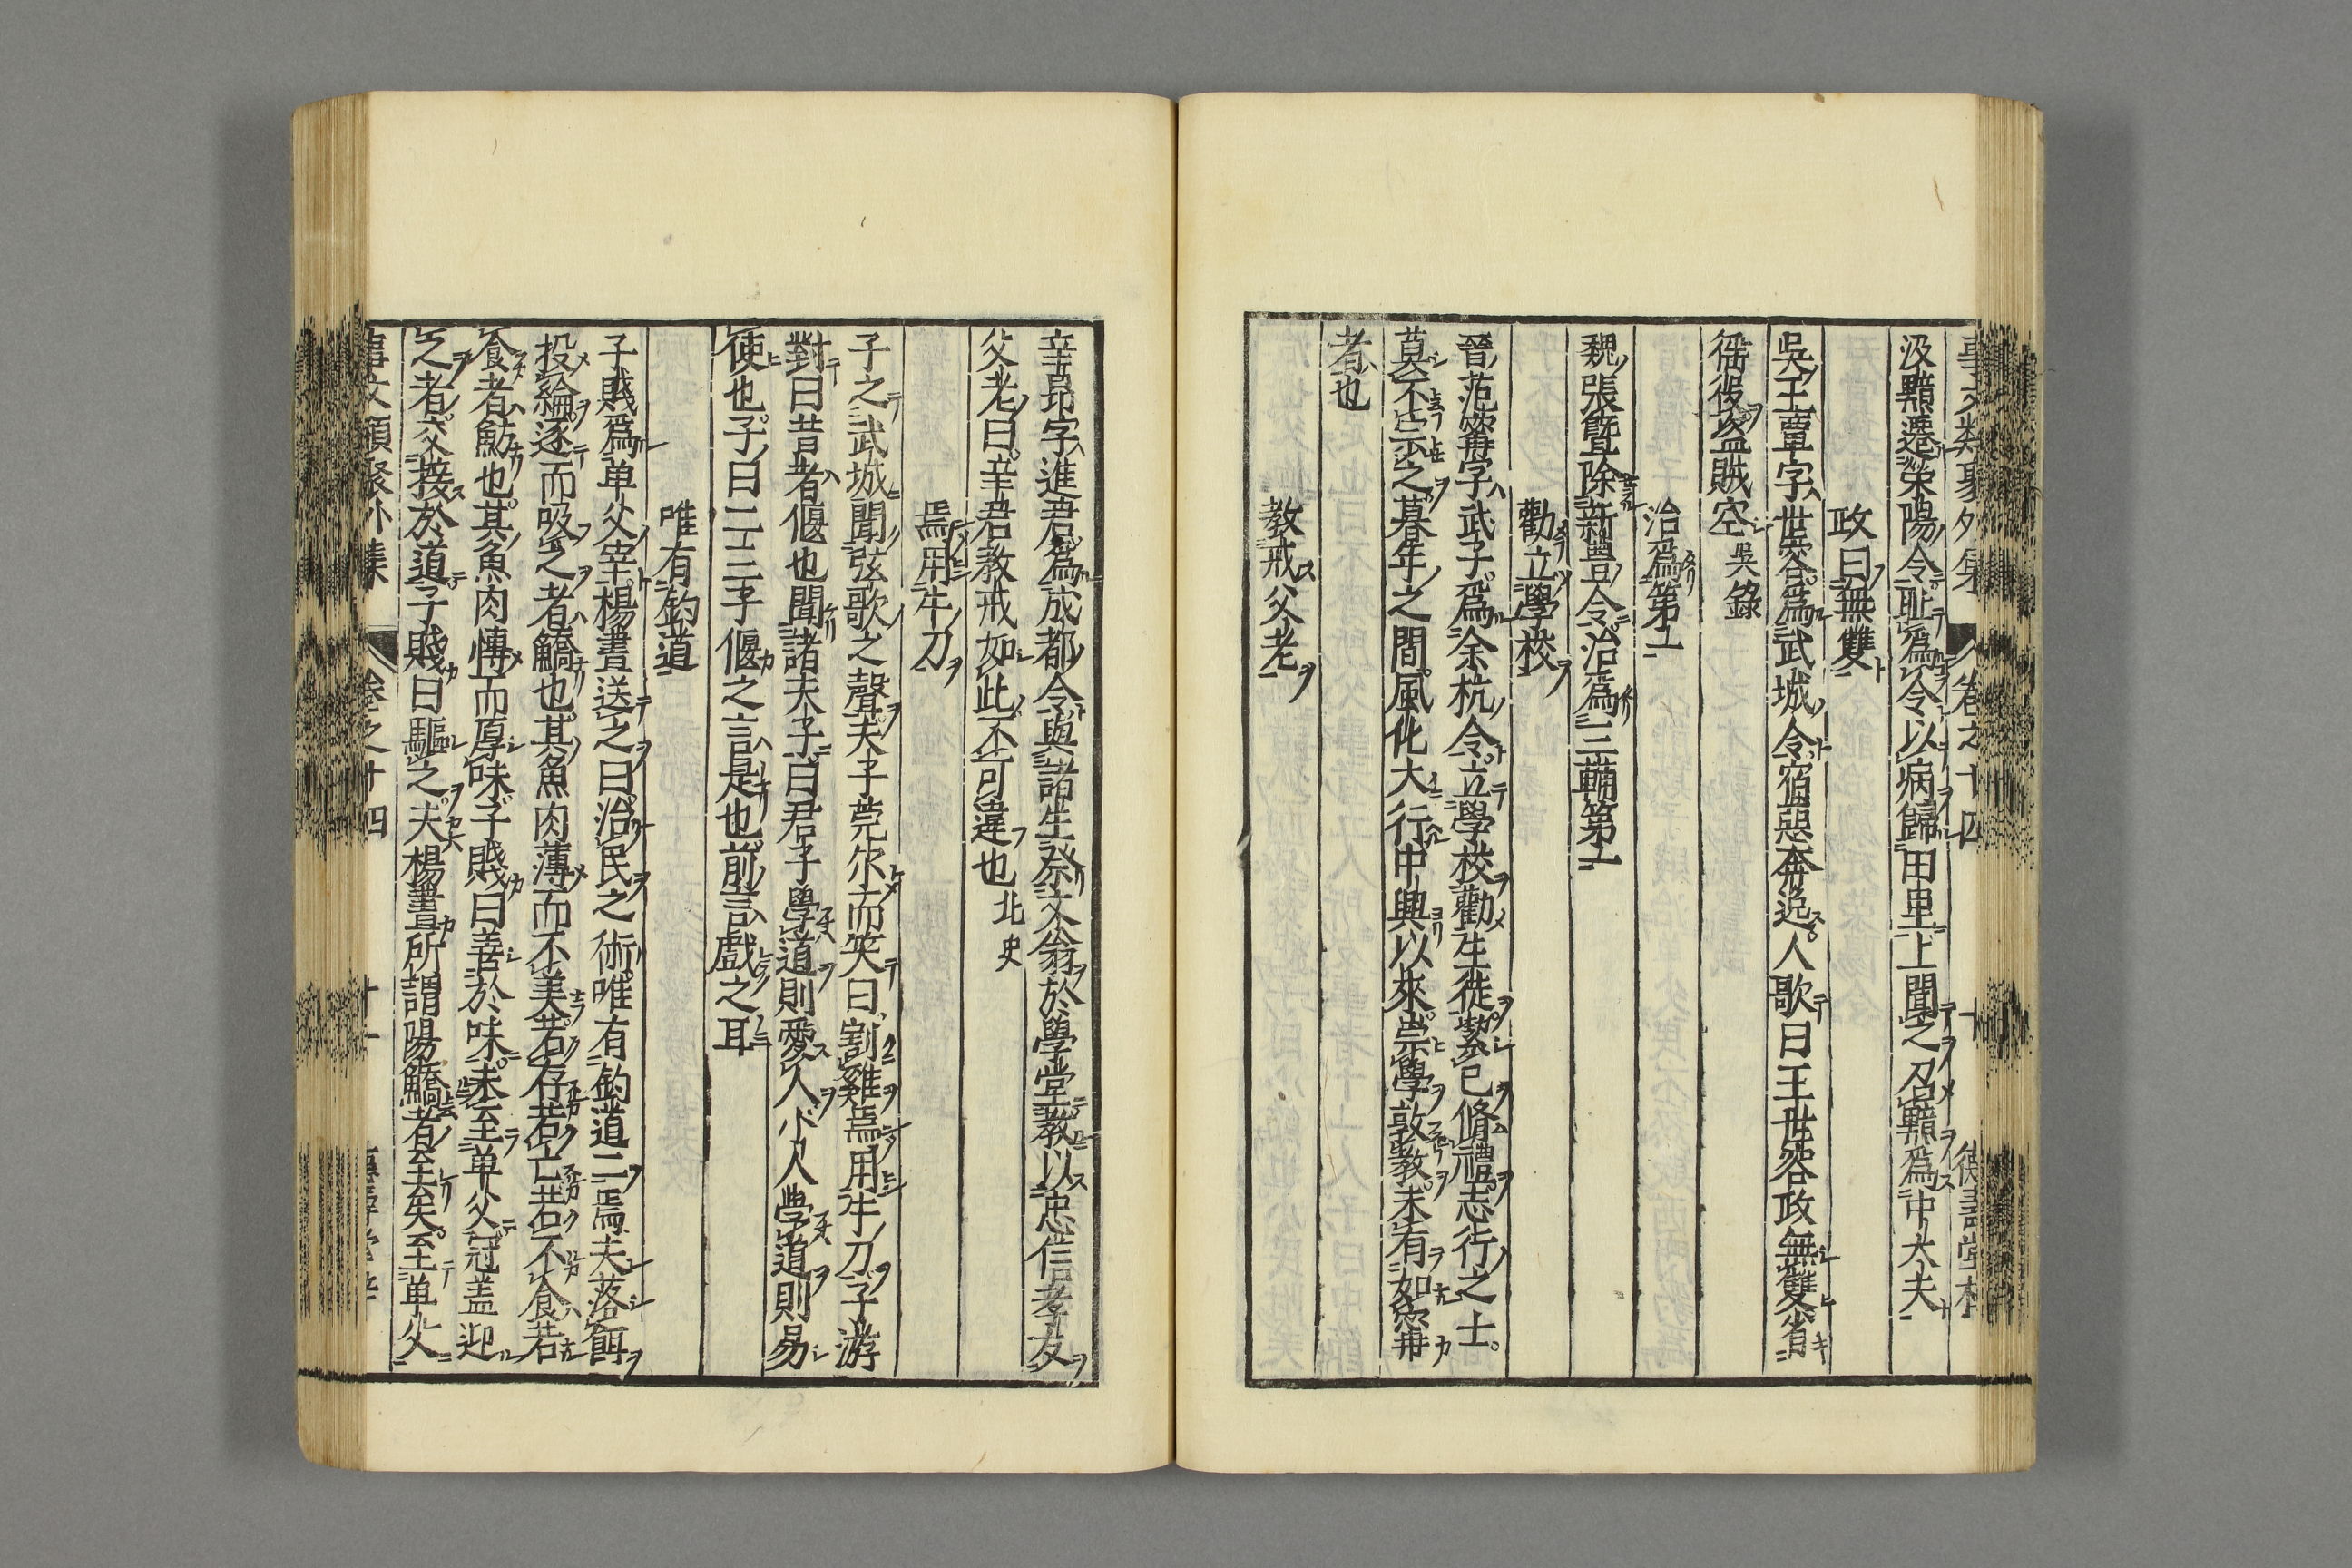 事文類聚外集 卷之十四 十 德壽堂梓
汲黯遷榮陽令耻爲令以病歸田里上聞之乃召黯爲中大夫
政曰無雙
吳王覃字世容爲武城令宿惡奔迸人歌曰王世容政無雙省
徭役盗賊空吳錄
治爲第一
魏張暨除新豐令治爲三輔第一
勸立學校
晉范甯字武子爲余杭令立學校勸生徒絜已脩禮志行之士
莫不宗之暮年之間風化大行中興以來崇學敦教未有如甯
者也
教戒父老
辛昂字進君爲成都令與諸生祭文翁於學堂教以忠信孝友
父老曰辛君教戒如此不可違也北史
焉用牛刀
子之武城聞弦歌之聲夫子莞尔而笑曰割雞焉用牛刀子游
對曰昔者偃也聞諸夫子曰君子學道則愛人小人學道則易
使也子曰二三子偃之言是也前言戲之耳
唯有釣道
子賤爲单父宰楊晝送之曰治民之術唯有釣道二焉夫落餌
投綸逐而吸之者鱎也其魚肉薄而不美若存若亡若不食若
食者魴也其魚肉慱而厚味子賤曰善於味未至单父冠盖迎
之者交接於道子賤曰驅之夫楊晝所謂陽鱎者至矣至单父
事文類聚外集 卷之十四 十一